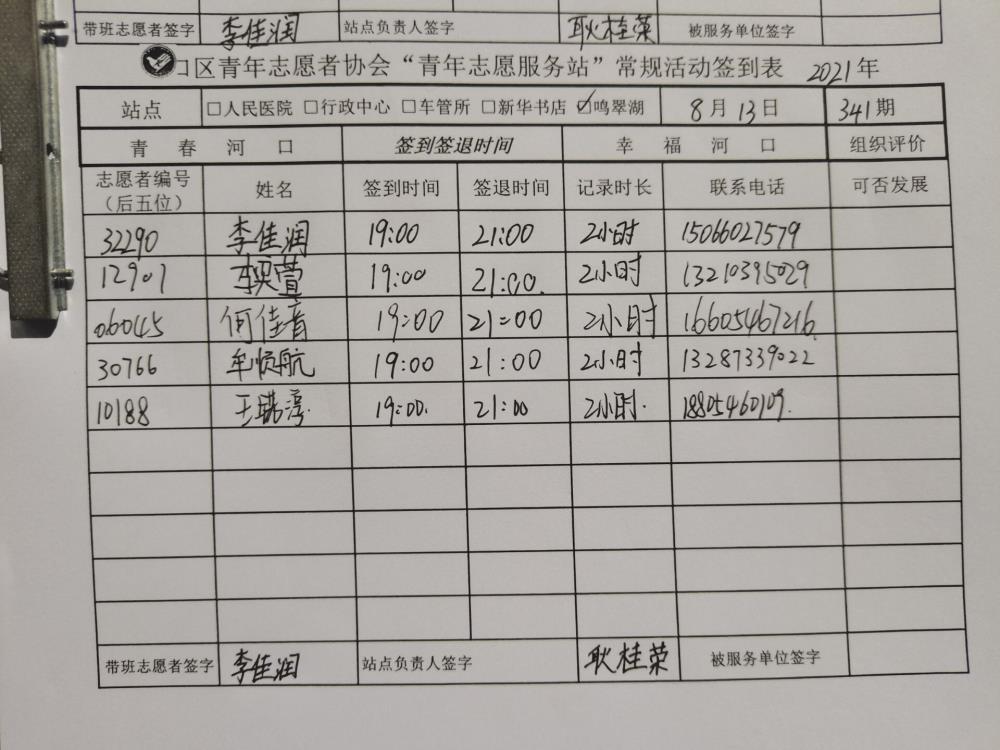 带班志愿者签字 李佳润 站点负责人签字 耿桂荣 被服务单位签字
口区青年志愿者协会“青年志愿服务站”常规活动签到表 2021年
站点 □人民医院 □行政中心 □车管所 □新华书店 ☑鸣翠湖 8月13日 341期
青春河口 签到签退时间 幸福河口 组织评价
志愿者编号（后五位） 姓名 签到时间 签退时间 记录时长 联系电话 可否发展
32290 李佳润 19:00 21:00 2小时 15066027579
12901 19:00 21:00. 2小时 13210395029
06045 何佳音 19:00 21:00 2小时 16605467216.
30766 牟顺航 19:00 21:00 2小时 13287339022
10188 王瑞淳. 19:00. 21:00 2小时. 18805460109.
带班志愿者签字 李佳润 站点负责人签字 耿桂荣 被服务单位签字